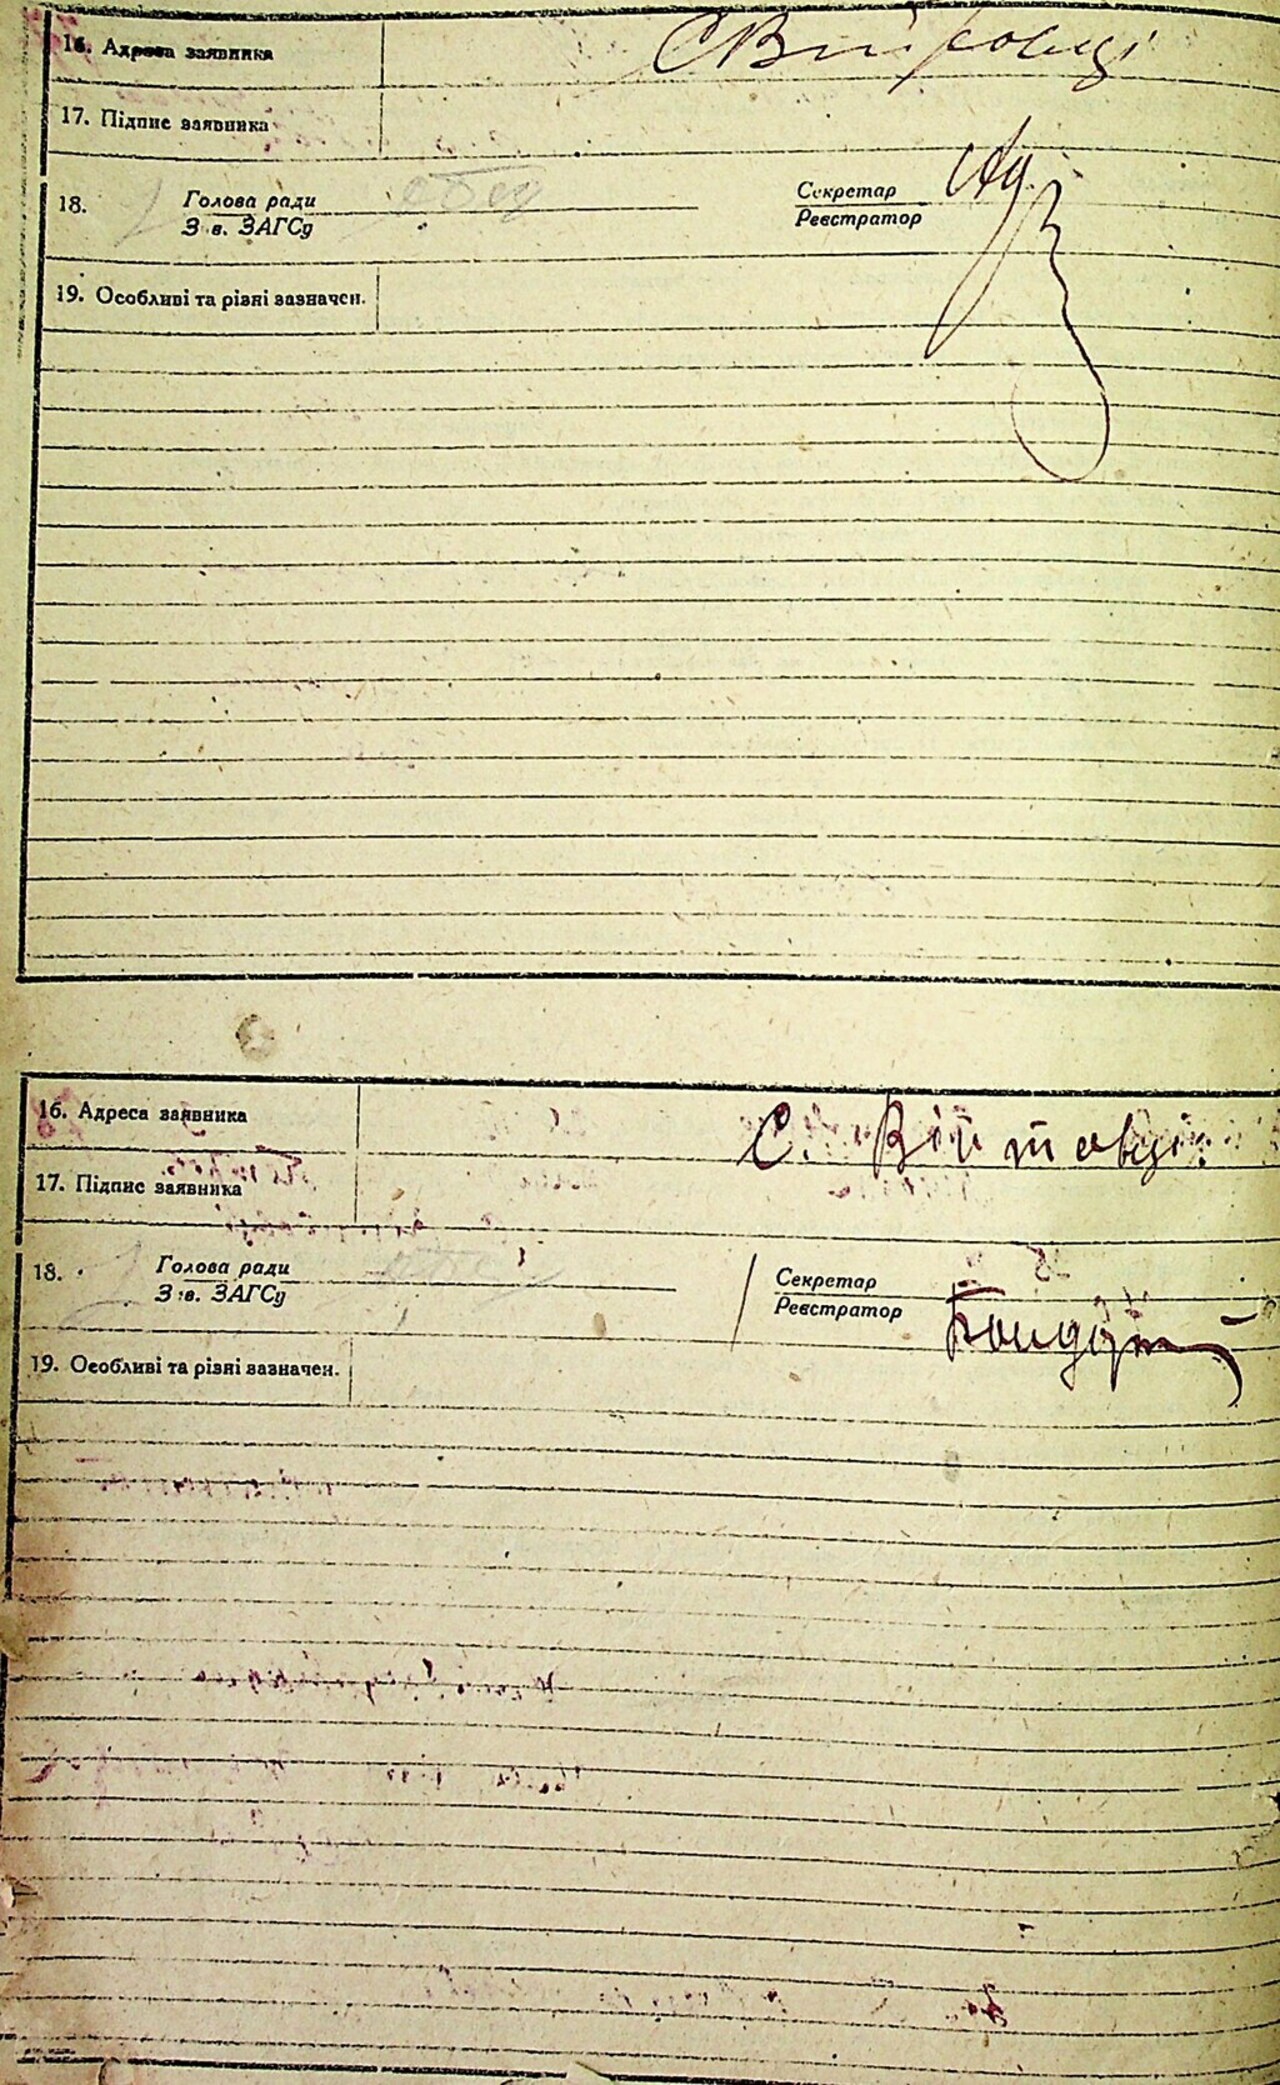 16. Адреса заявника С Війтовці
17. Підпис заявника
18. Голова ради Секретар
З в. ЗАГСу Реєстратор
19. Особливі та різні зазначен.
16. Адреса заявника С. Війтовці
17. Підпис заявника
18. Голова ради Секретар
З в. ЗАГСу Реєстратор
19. Особливі та різні зазначен.